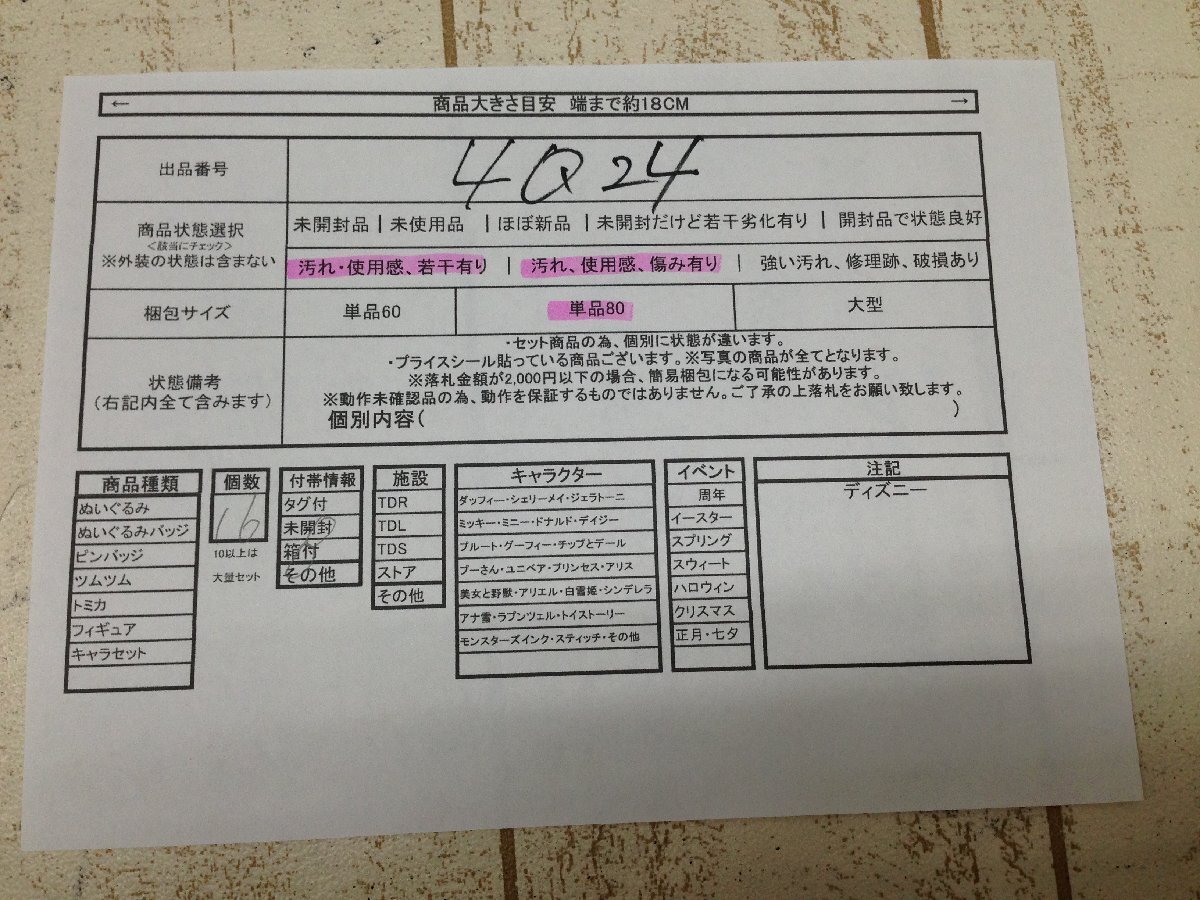 ← 商品大きさ目安 端まで約18CM →
出品番号 4Q24
商品状態選択
<該当にチェック>
※外装の状態は含まない
未開封品 | 未使用品 | ほぼ新品 | 未開封だけど若干劣化有り | 開封品で状態良好
汚れ・使用感、若干有り | 汚れ、使用感、傷み有り | 強い汚れ、修理跡、破損あり
梱包サイズ 単品60 単品80 大型
状態備考
(右記内全て含みます)
・セット商品の為、個別に状態が違います。
・プライスシール貼っている商品ございます。※写真の商品が全てとなります。
※落札金額が2,000円以下の場合、簡易梱包になる可能性があります。
※動作未確認品の為、動作を保証するものではありません。ご了承の上落札をお願い致します。
個別内容( )
商品種類
ぬいぐるみ
ぬいぐるみバッジ
ピンバッジ
ツムツム
トミカ
フィギュア
キャラセット
個数
16
10以上は
大量セット
付帯情報
タグ付
未開封
箱付
その他
施設
TDR
TDL
TDS
ストア
その他
キャラクター
ダッフィー・シェリーメイ・ジェラトーニ
ミッキー・ミニー・ドナルド・デイジー
プルート・グーフィー・チップとデール
プーさん・ユニベア・プリンセス・アリス
美女と野獣・アリエル・白雪姫・シンデレラ
アナ雪・ラプンツェル・トイストーリー
モンスターズインク・スティッチ・その他
イベント
周年
イースター
スプリング
スウィート
ハロウィン
クリスマス
正月・七夕
注記
ディズニー